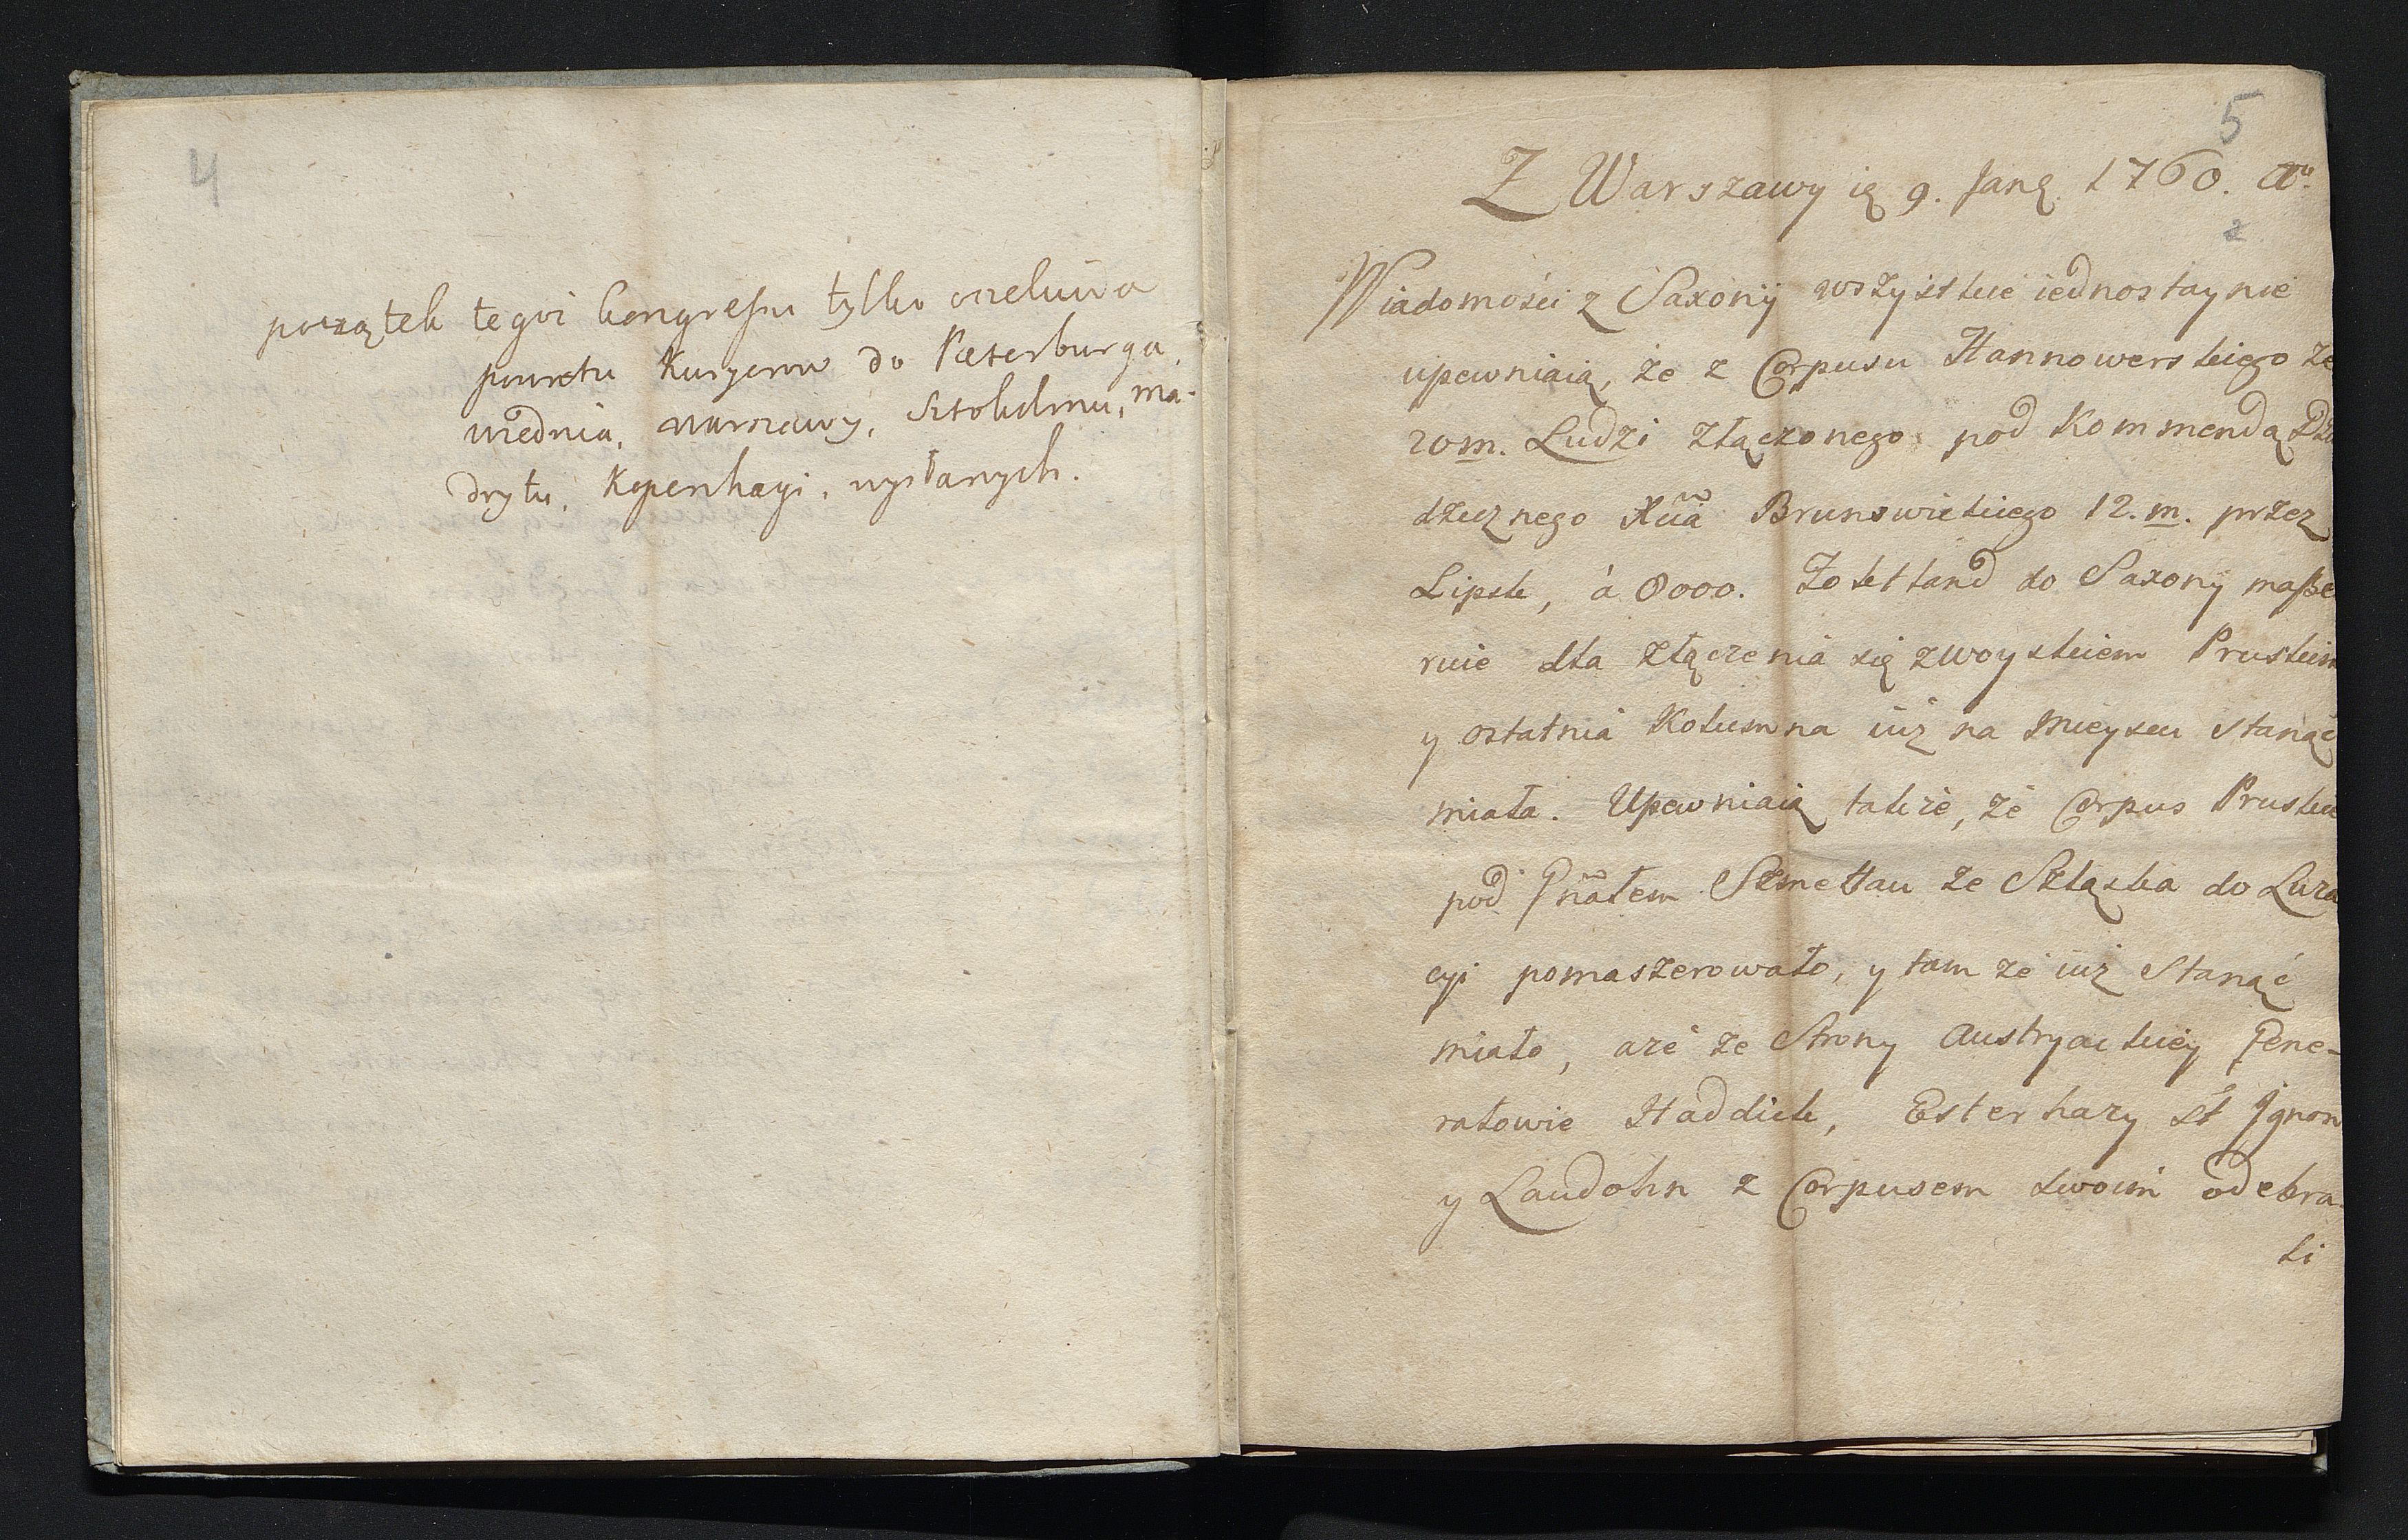 4
początek tegoż kongressu tylko oczekiwa
powrotu Kuryerow do Petersburga,
wiednia, warszawy, Sztokolmu, ma-
drytu, Kopenhagi, wysłanych.
5
Z Warszawy ię 9. Janę 1760. Aº.
2
Wiadomości z Saxonij wszystkie iednostaynie
upewniaią, że z Corpusu Hannowerskiego ze
20m. Ludzi złączonego pod Kommendą Dzie
dzicznego Xcia Brunswickiego 12. m. przez
Lipsk, á 8000. Zo let land do Saxony masze
ruie dla złączenia się z woyskiem Pruskim
y ostatnia Kolumna iuż na Mieyscu Stanąć
miała. Upewniaią także, że Corpus Pruskie
pod Gnałem Szmettau ze Szląska do Luza
cyi pomaszerowało, y tam że iuż Stanąć
miało, aże ze Strony Austryackiey Gene-
rałowie Haddick, Esterhazy St Ignon
y Laudohn z Corpusem swoim odebra-
li